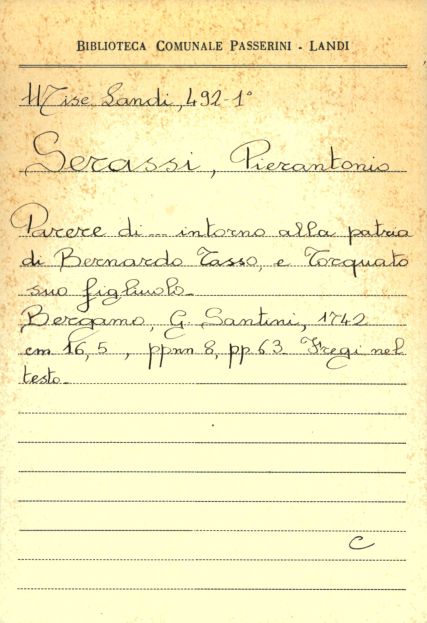 BIBLIOTECA COMUNALE PASSERINI - LANDI
Mise Landi, 492-1°
Serassi, Pierantonio
Parere di ... intorno alla patria
di Bernardo Tasso, e Torquato
suo figliuolo.
Bergamo, G. Santini, 1742
cm 16,5, ppnn 8, pp 63. Fregi nel
testo.
C